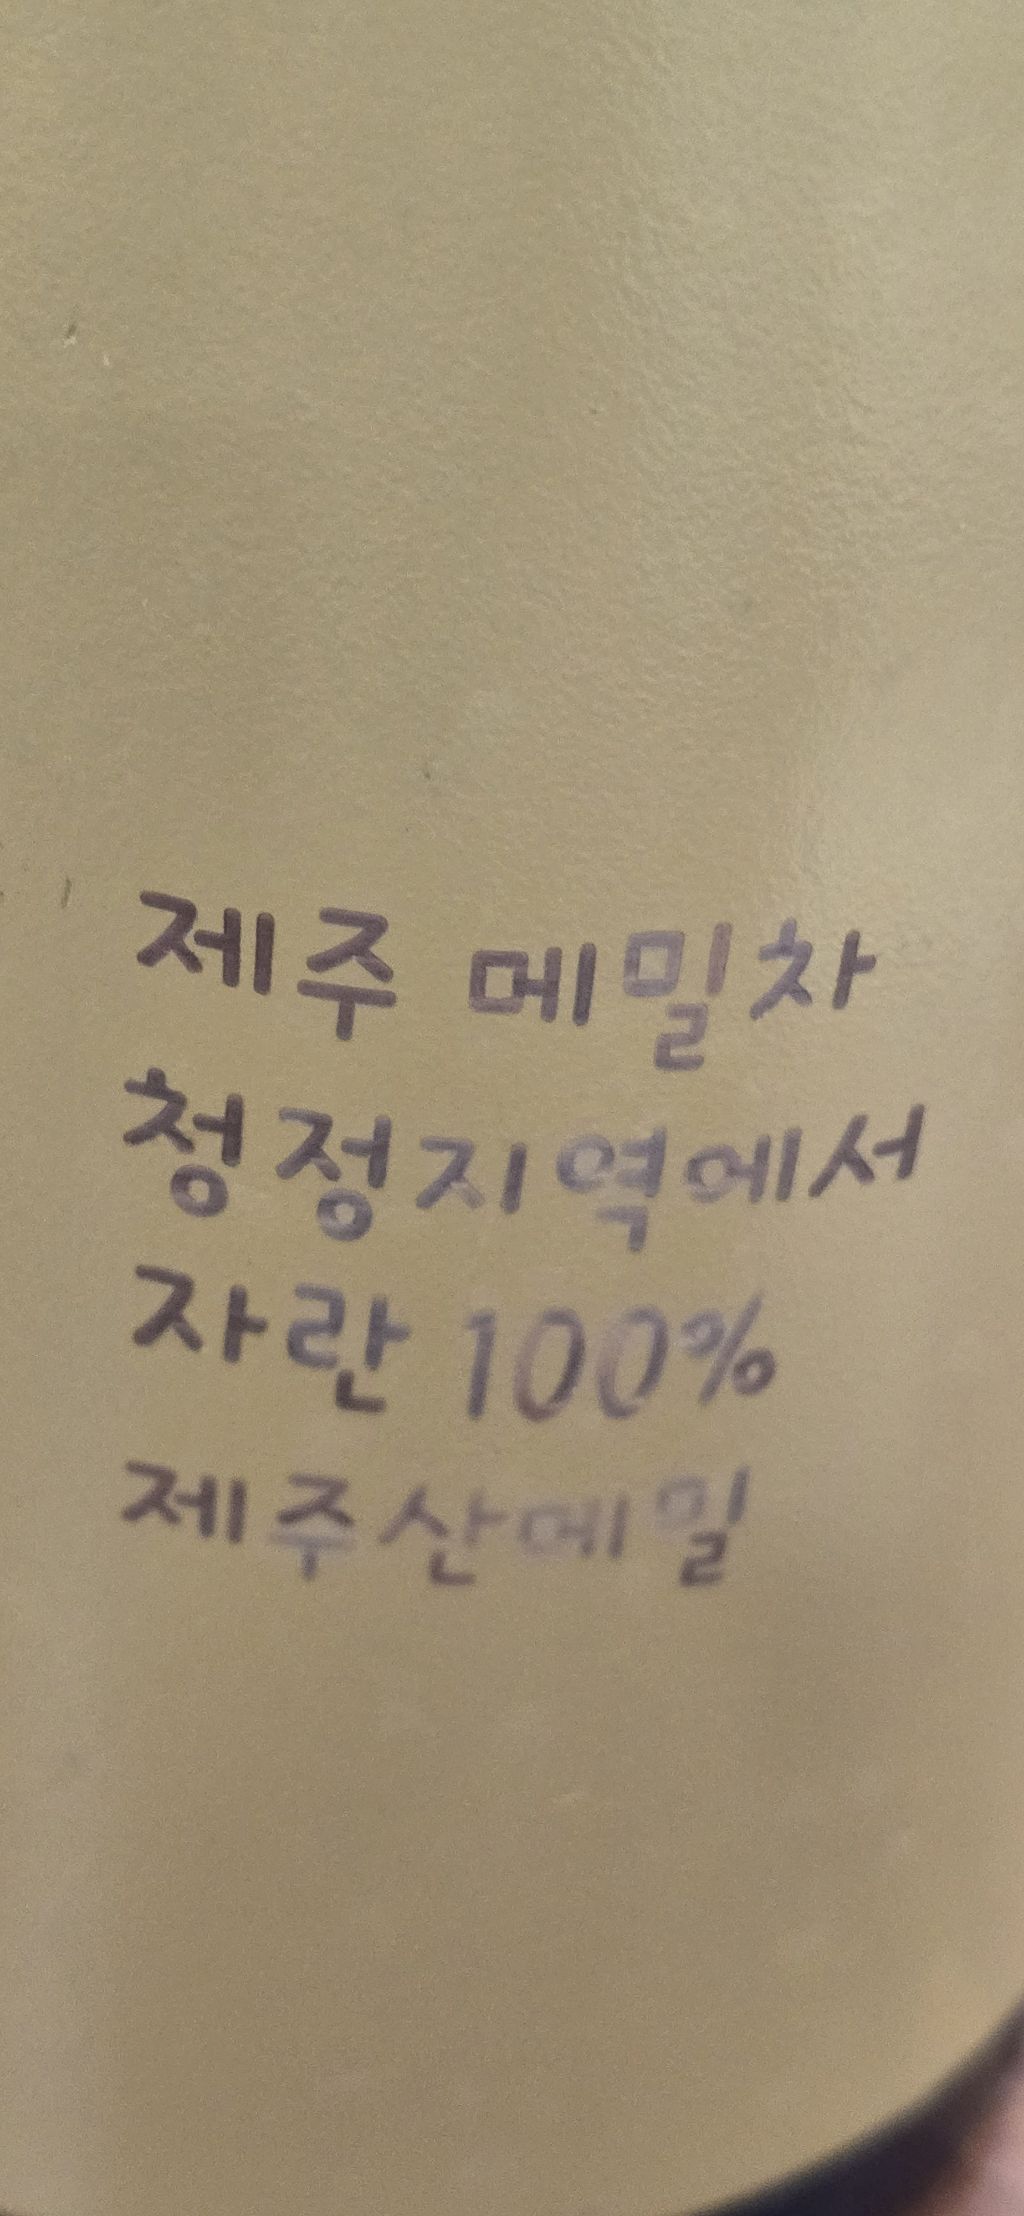 제주 메밀차
청정지역에서
자란 100%
제주산메밀